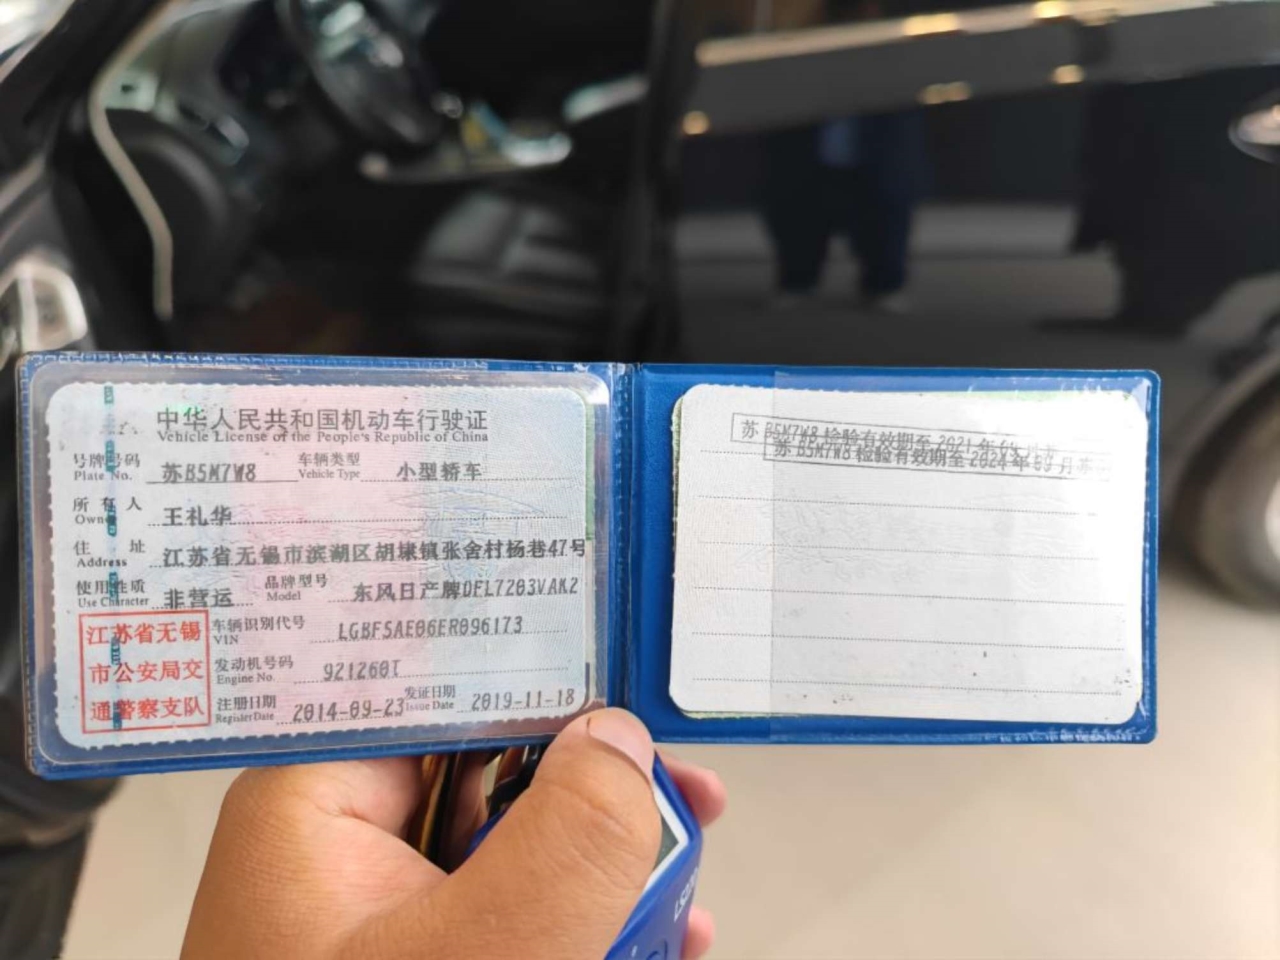 中华人民共和国机动车行驶证
Vehicle License of the People's Republic of China
号牌号码 苏B5M7W8 车辆类型 小型轿车
Plate No. Vehicle Type
所有人 王礼华
Owner
住址 江苏省无锡市滨湖区胡埭镇张舍村杨巷47号
Address
使用性质 非营运 品牌型号 东风日产牌DFL7203VAK2
Use Character Model
江苏省无锡
市公安局交
通警察支队
车辆识别代号 LGBF5AE06ER096173
VIN
发动机号码 921260T
Engine No.
注册日期 2014-09-23 发证日期 2019-11-18
Register Date Issue Date
苏B5M7W8检验有效期至2021年
苏B5M7W8检验有效期至2024年09月苏